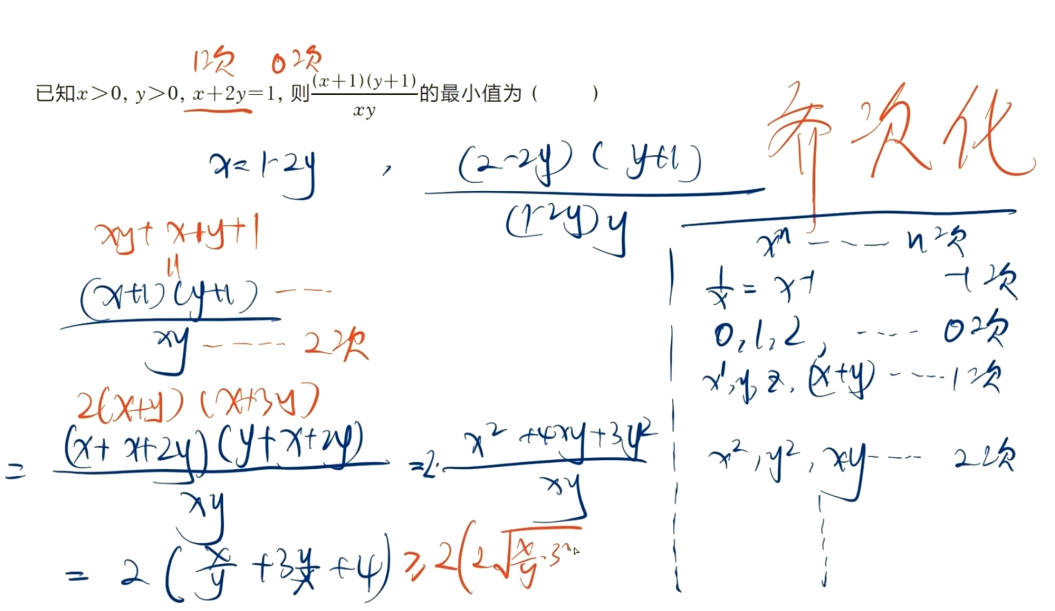 1次 0次
已知x>0, y>0, x+2y=1, 则(x+1)(y+1)/xy的最小值为 ( )
齐次化
x=1-2y , (2-2y)(y+1)/(1-2y)y
xy+x+y+1
=
(x+1)(y+1)/xy ---- 2次
2(x+y)(x+3y)
= (x+x+2y)(y+x+2y)/xy = 2·(x²+4xy+3y²)/xy
= 2(x/y+3y/x+4) ≥ 2(2√(x/y·3
xⁿ ---- n次
1/x = x⁻¹ -1次
0,1,2, ---- 0次
x¹,y,z,(x+y) ---- 1次
x²,y²,xy ---- 2次